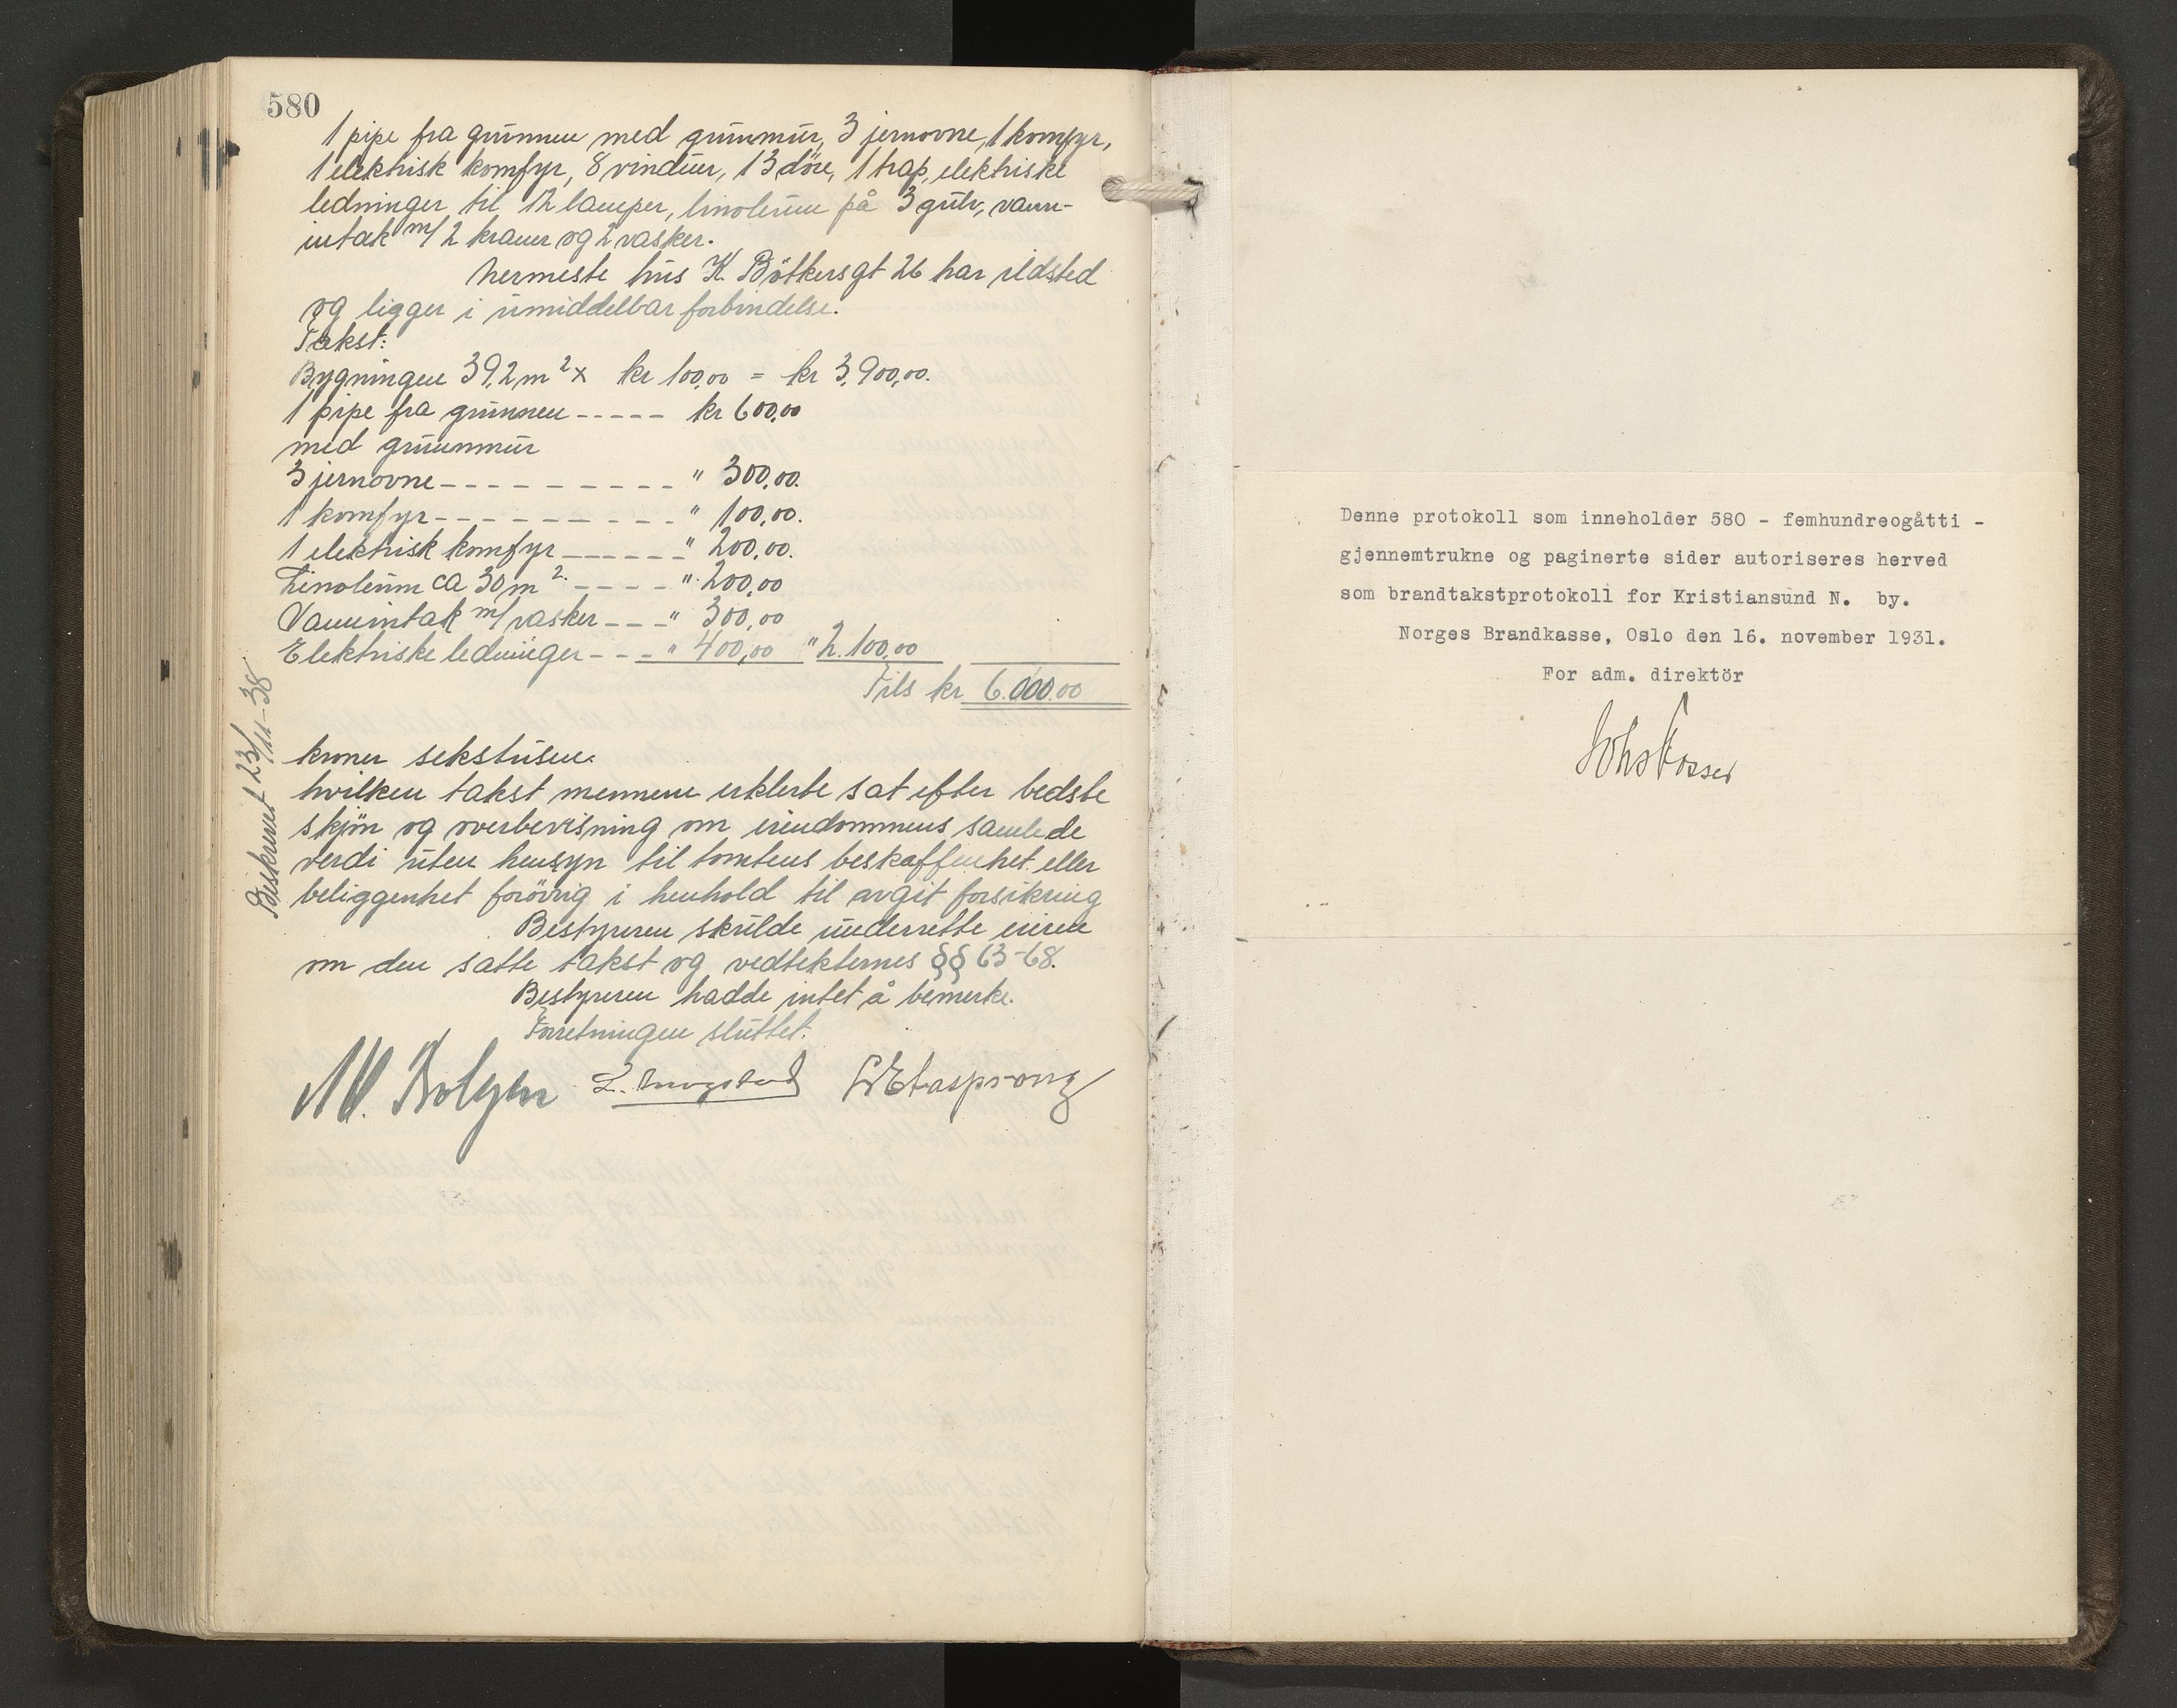 580
1 pipe fra grunnen med grunnmur, 3 jernovne, 1 komfyr,
1 elektrisk komfyr, 8 vinduer, 13 döre, 1 trap, elektriske
ledninger til 12 lamper, linoleum på 3 gulv, vann-
intak m/ 2 kraner og 2 vasker.
Nermeste hus K. Bötkersgt 26 har ildsted
og ligger i umiddelbar forbindelse.
Takst:
Bygningen 39,2 m² x kr 100,00 = kr 3.900,00.
1 pipe fra grunnen ----- kr 600,00
med grunnmur
3 jernovne ---------- " 300,00.
1 komfyr ---------- " 100,00.
1 elektrisk komfyr ------ " 200,00.
Linoleum ca 30 m² ---- " 200,00
Vannintak m/ vasker --- " 300,00
Elektriske ledninger --- " 400,00 " 2.100,00
Tils kr 6.000.00
kroner sekstusen.
hvilken takst mennene erklerte sat efter bedste
skjön og overbevisning om eiendommens samlede
verdi uten hensyn til tomtens beskaffenhet eller
beliggenhet forövrig i henhold til avgit forsikring
Bestyreren skulde underrette eieren
om den satte takst og vedtekternes §§ 63-68.
Bestyreren hadde intet å bemerke.
Forretningen sluttet.
Beskrevet 23/11-38
Denne protokoll som inneholder 580 - femhundreogåtti -
gjennemtrukne og paginerte sider autoriseres herved
som brandtakstprotokoll for Kristiansund N. by.
Norges Brandkasse, Oslo den 16. november 1931.
For adm. direktör